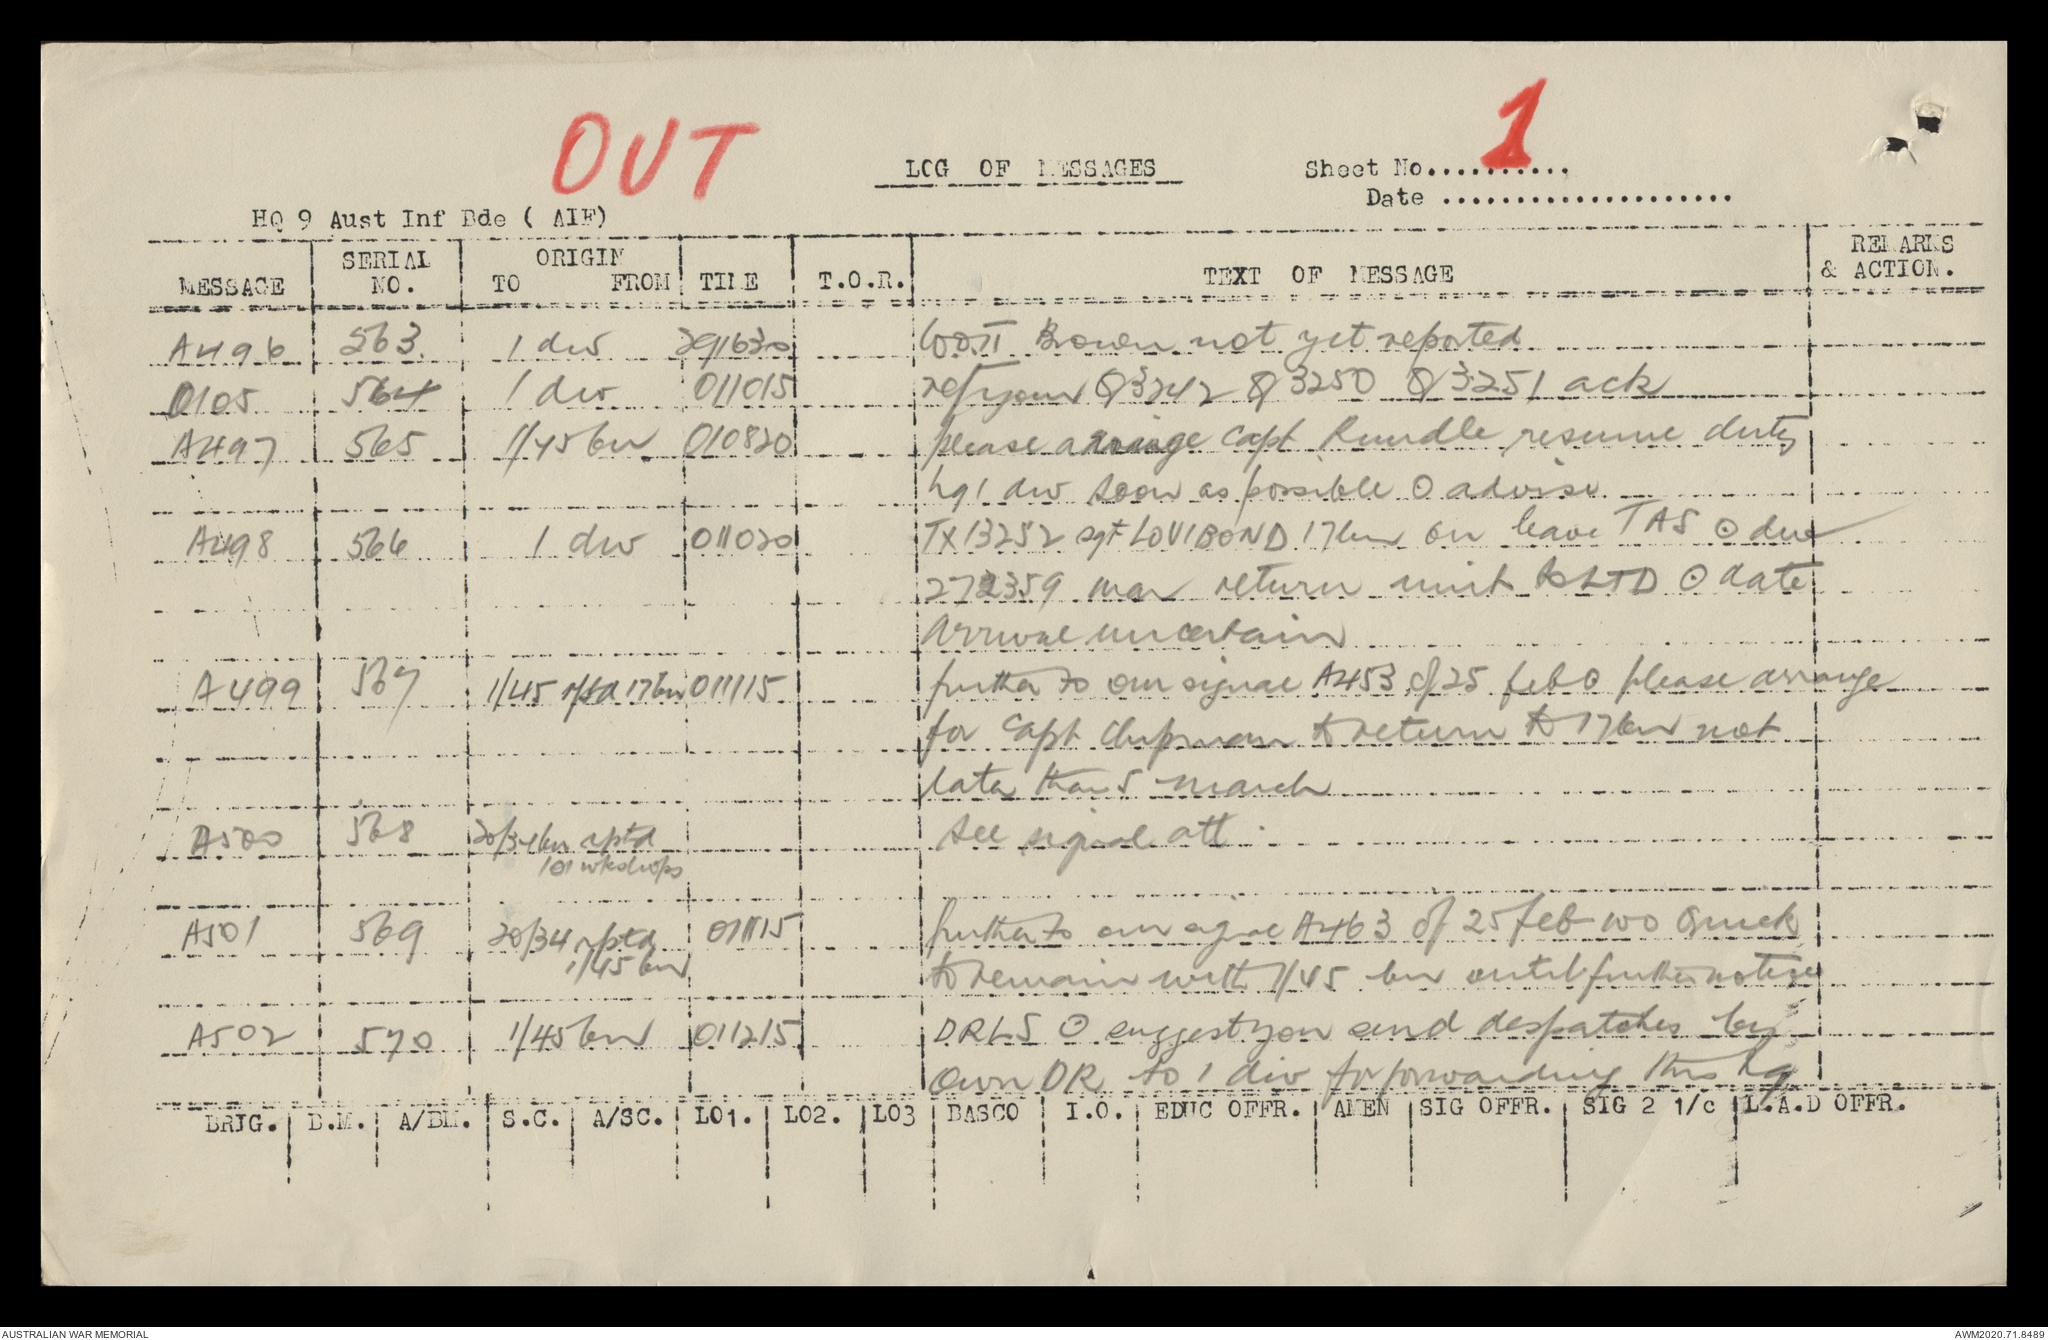 OUT
LOG OF MESSAGES
Sheet No..........
1
Date ....................
HQ 9 Aust Inf Bde ( AIF)
MESSAGE SERIAL NO. ORIGIN TO FROM TIME T.O.R. TEXT OF MESSAGE REMARKS & ACTION.
A496 563 1 div 291630 WOII Brown not yet reported
O105 564 1 div 011015 ref your Q3242 Q3250 Q3251 ack
A497 565 1/45 bn 010820 please arrange Capt Rundle resume duty
hq 1 div soon as possible ⊙ advise
A498 566 1 div 011020 TX13252 sgt LOVIBOND 17bn on leave TAS ⊙ due
272359 mar return unit LTD ⊙ date
Arrival uncertain
A499 567 1/45 rptd 17bn 011115 further to our signal A453 of 25 feb ⊙ please arrange
for Capt Chipman to return to 17bn not
later than 5 march
A500 568 20/34bn rptd see signal att
101 wkshops
A501 569 20/34 rptd 011115 further to our signal A463 of 25 feb WO Quick
1/45 bn to remain with 1/45 bn until further notice
A502 570 1/45 bn 011215 DRLS ⊙ suggest you send despatches by
own DR to 1 div for forwarding this hq
BRIG. B.M. A/BM. S.C. A/SC. LO1. LO2. LO3 BASCO I.O. EDUC OFFR. AMEN SIG OFFR. SIG 2 1/c L.A.D OFFR.
AUSTRALIAN WAR MEMORIAL
AWM2020.71.8489